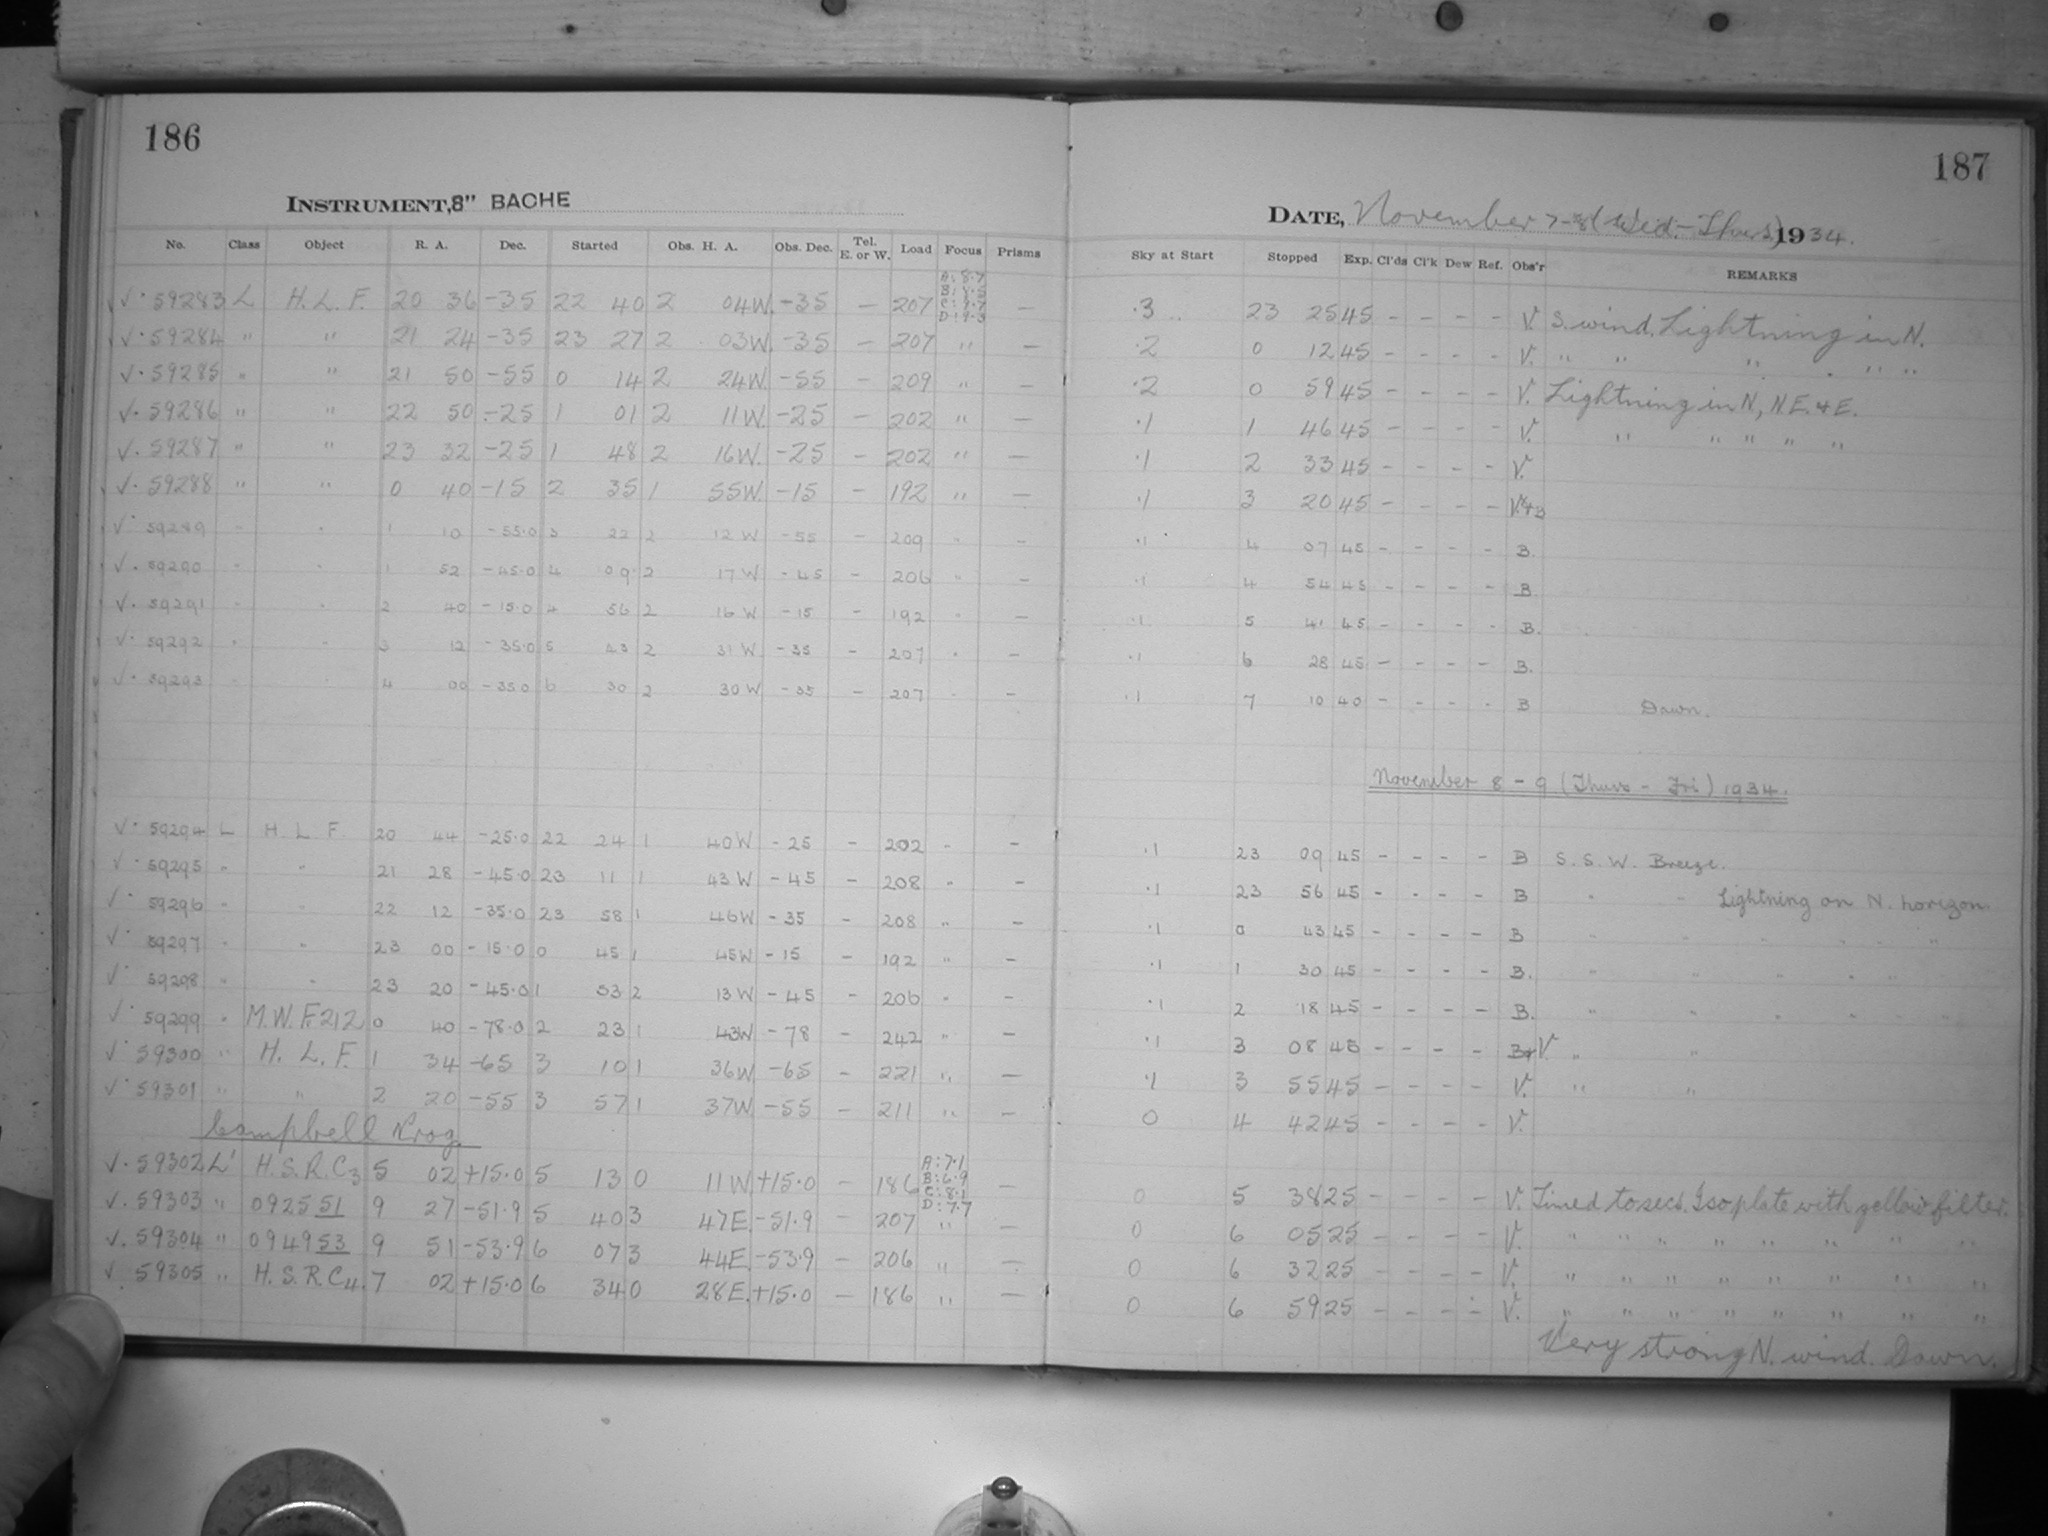 186
INSTRUMENT, 8" BACHE
No. Class Object R. A. Dec. Started Obs. H. A. Obs. Dec. Tel. E. or W. Load Focus Prisms
√· 59283 L H. L. F. 20 36 -35 22 40 2 04W. -35 — 207 —
√· 59284 " " 21 24 -35 23 27 2 03W. -35 — 207 " —
√· 59285 " " 21 50 -55 0 14 2 24W -55 — 209 " —
√· 59286 " " 22 50 -25 1 01 2 11W. -25 — 202 " —
√· 59287 " " 23 32 -25 1 48 2 16W. -25 — 202 " —
√· 59288 " " 0 40 -15 2 35 1 55W. -15 — 192 " —
√· 59289 " " 1 10 -55.0 3 22 2 12 W -55 — 209 " —
√· 59290 " " 1 52 -45.0 4 09 2 17 W -45 — 206 " —
√· 59291 " " 2 40 -15.0 4 56 2 16 W -15 — 192 " —
√· 59292 " " 3 12 -35.0 5 43 2 31 W -35 — 207 " —
√· 59293 " " 4 00 -35.0 6 30 2 30 W -35 — 207 " —
√· 59294 L H. L. F. 20 44 -25.0 22 24 1 40 W -25 — 202 " —
√· 59295 " " 21 28 -45.0 23 11 1 43 W -45 — 208 " —
√· 59296 " " 22 12 -35.0 23 58 1 46W -35 — 208 " —
√· 59297 " " 23 00 -15.0 0 45 1 45W -15 — 192 " —
√· 59298 " " 23 20 -45.0 1 33 2 13 W -45 — 206 " —
√· 59299 " M.W.F. 212 0 40 -78.0 2 23 1 43W -78 — 242 " —
√· 59300 " H. L. F. 1 34 -65 3 10 1 36W -65 — 221 " —
√· 59301 " " 2 20 -55 3 57 1 37W -55 — 211 " —
Campbell Prog.
√· 59302 L' H.S.R.C3 5 02 +15.0 5 13 0 11W +15.0 — 186 A:7.1 B:6.9 C:8.1 D:7.7 —
√· 59303 " 092551 9 27 -51.9 5 40 3 47E. -51.9 — 207 " —
√· 59304 " 094953 9 51 -53.9 6 07 3 44E. -53.9 — 206 " —
√· 59305 " H.S.R.C4. 7 02 +15.0 6 34 0 28E. +15.0 — 186 " —
187
DATE, November 7-8 (Wed.-Thurs.) 1934.
Sky at Start Stopped Exp. Cl'ds Cl'k Dew Ref. Obs'r REMARKS
.3 23 25 45 - - - - V. S. wind. Lightning in N.
.2 0 12 45 - - - - V. " " " " "
.2 0 59 45 - - - - V. Lightning in N, N.E. & E.
.1 1 46 45 - - - - V. " " " " "
.1 2 33 45 - - - - V.
.1 3 20 45 - - - - V.&B
.1 4 07 45 - - - - B.
.1 4 54 45 - - - - B.
.1 5 41 45 - - - - B.
.1 6 28 45 - - - - B.
.1 7 10 40 - - - - B Dawn.
November 8 - 9 (Thurs - Fri) 1934.
.1 23 09 45 - - - - B S. S. W. Breeze.
.1 23 56 45 - - - - B " " Lightning on N. horizon.
.1 0 43 45 - - - - B " " " " " "
.1 1 30 45 - - - - B. " " " " "
.1 2 18 45 - - - - B. " " " " " "
.1 3 08 45 - - - - B&V. " "
.1 3 55 45 - - - - V. " "
0 4 42 45 - - - - V.
0 5 38 25 - - - - V. Timed to secs. Iso plate with yellow filter.
0 6 05 25 - - - - V. " " " " " " " "
0 6 32 25 - - - - V. " " " " " " " "
0 6 59 25 - - - - V. " " " " " " " "
Very strong N. wind. Dawn.